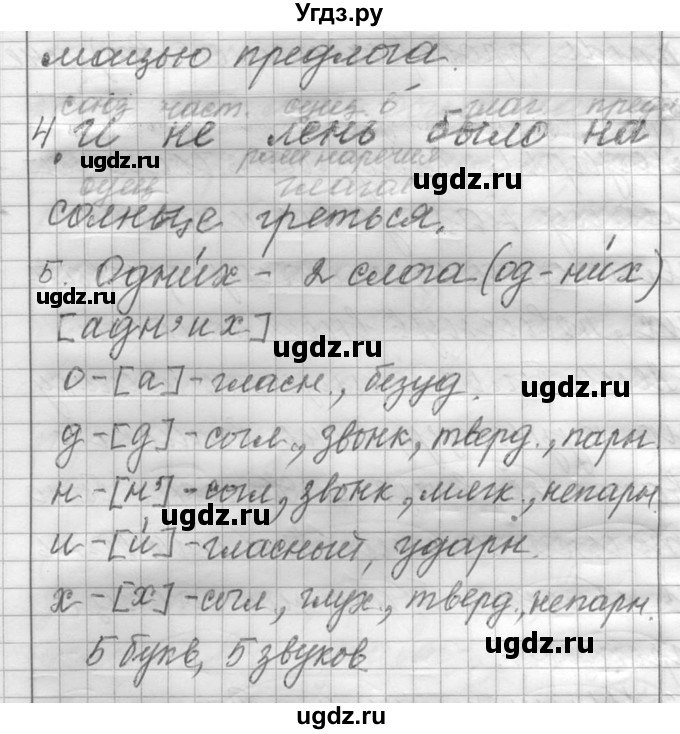 Угдз.ру
мощью предлога.
союз част. сущ. глаг. предл.
4. И не лень было на
ugdz.ru
ugdz.ru
роли наречия
сущ. глагол
солнце греться.
ugdz.ru
5. Одни́х - 2 слога (од-ни́х)
[адн'их]
ugdz.ru
о-[а]-гласн., безуд.
ugdz.ru
д-[д]-согл., звонк., тверд., парн.
н-[н']-согл., звонк., мягк., непарн.
ugdz.ru
и-[и́]-гласный, ударн.
х-[х]-согл., глух., тверд., непарн.
5 букв, 5 звуков
ugdz.ru
ugdz.ru